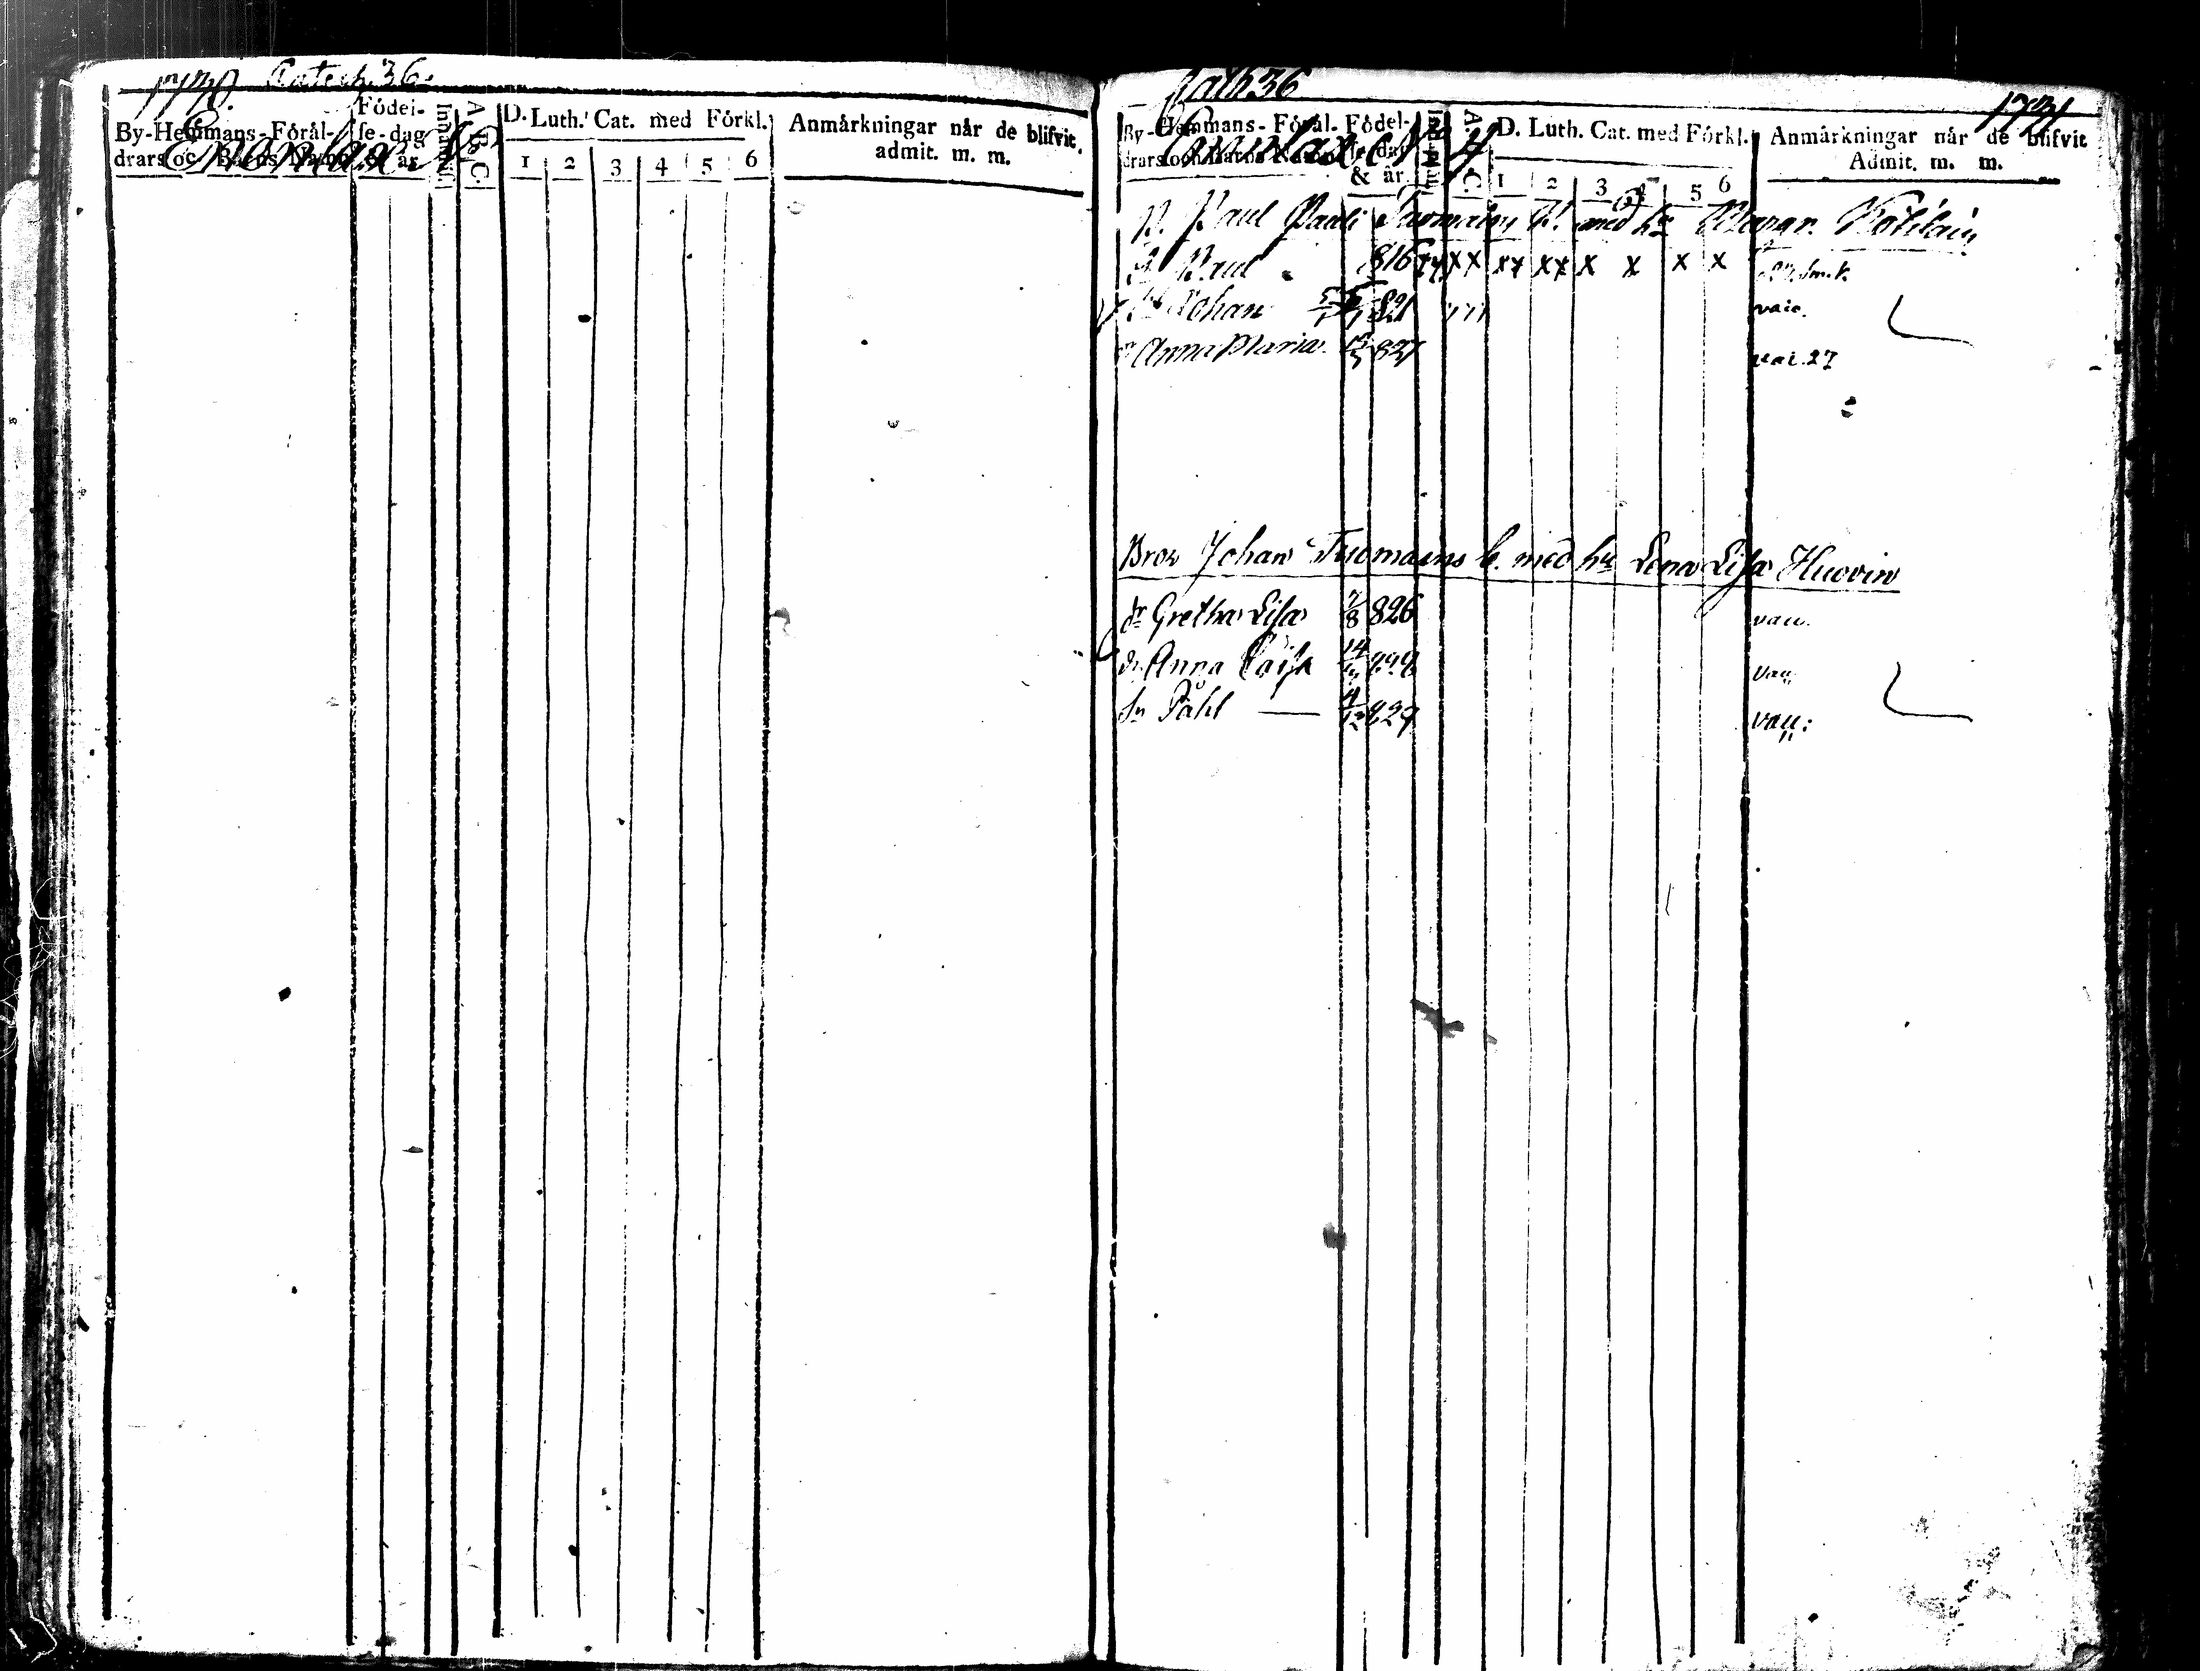 1730. Catech. 36.
Enonlax N
By-Hemmans-Förål-
drars oc Barns Namn
Födel-
se-dag
& år
A. B. C.
D. Luth. Cat. med Förkl.
1 2 3 4 5 6
Anmårkningar når de blifvit.
admit. m. m.
Cath 36
1731
Enonlax N 4
By-Hemmans-Förål-
drars och Barns Namn
Födel-
se-dag
& år
A. B. C.
D. Luth. Cat. med Förkl.
1 2 3 4 5 6
Anmårkningar når de blifvit
Admit. m. m.
B. Paul Pauli Tuomains B. med hu Margr. Kötilain
S. Paul 816 xx xx xx xx x x x x
Sn Johan 821 vaic.
dr Anna Maria 827 vai. 27
Bror Johan Tuomains b. med hu Lena Lisa Huovin
dr Gretha Lisa 7/8 826 vacc.
dr Anna Caisa 14 vacc
Sn Påhl — 4/12 829 vacc: